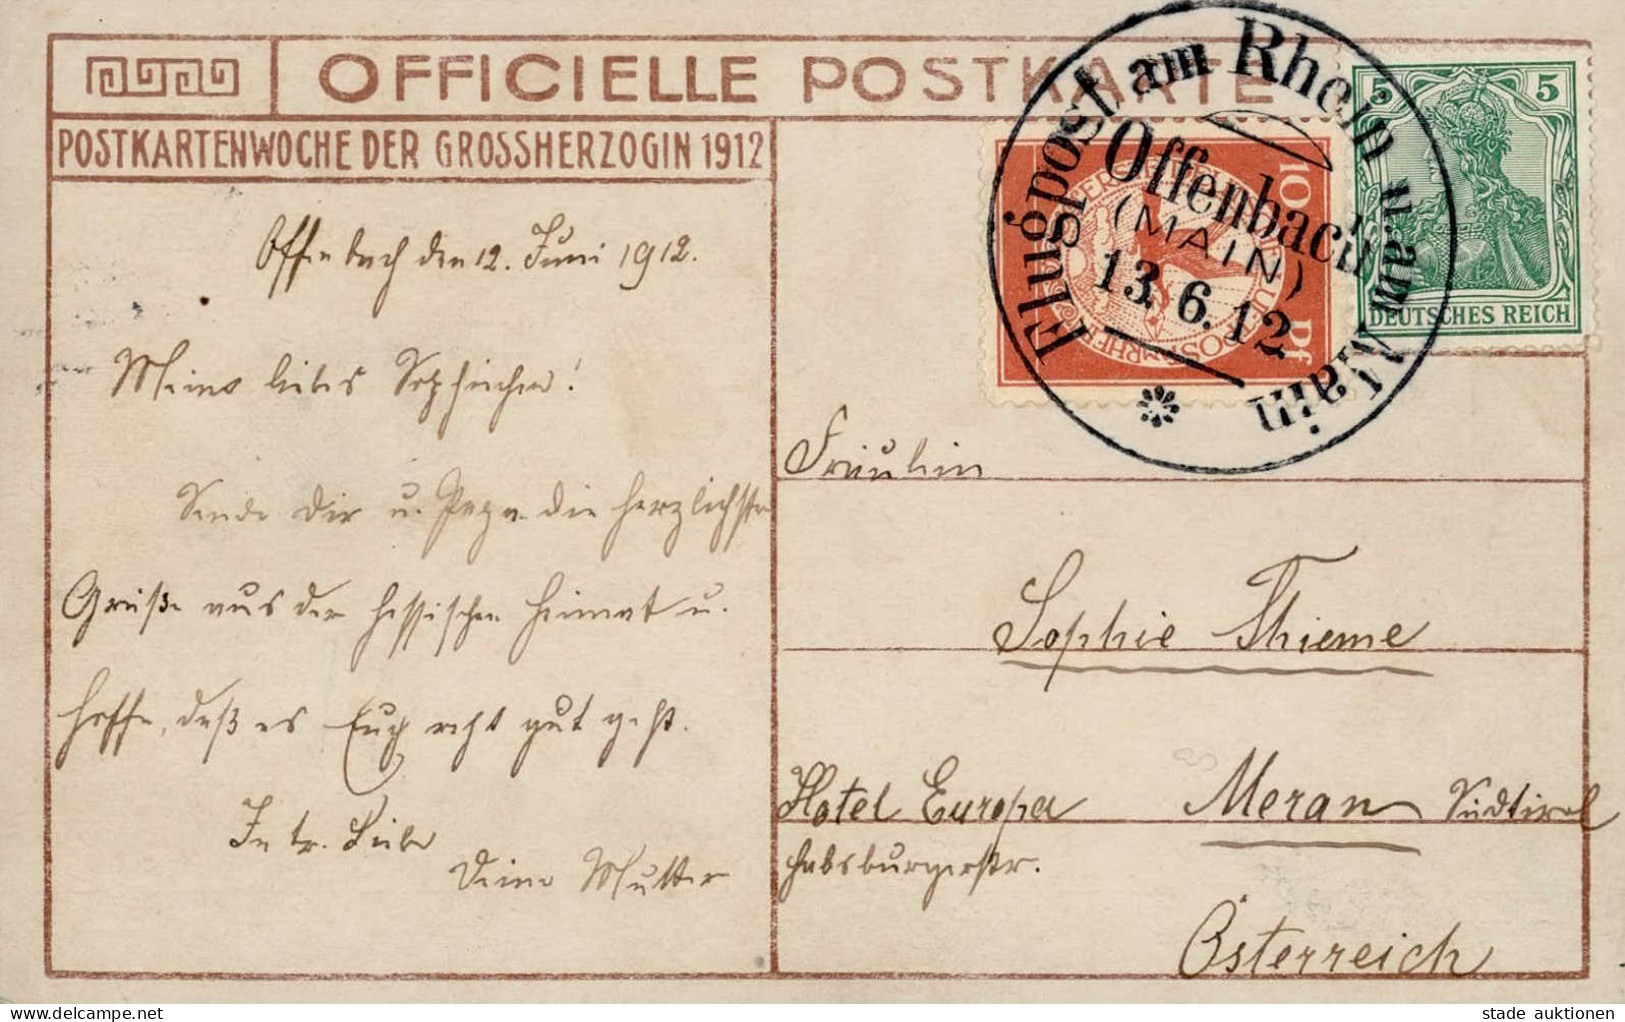 OFFICIELLE POSTKARTE
POSTKARTENWOCHE DER GROSSHERZOGIN 1912
Offenbach den 12. Juni 1912.
Meine liebes Sophiechen!
Sende Dir u. Papa die herzlichsten
Grüße aus der hessischen Heimat u.
hoffe, daß es Euch recht gut geht.
In tr. Liebe
Deine Mutter
Flugpost am Rhein u. am Main
Offenbach
(MAIN)
13.6.12
10 Pf
5 5
DEUTSCHES REICH
Fräulein
Sophie Thieme
Hotel Europa Meran Südtirol
Habsburgerstr.
Österreich
hippostcard.com
stade auktionen